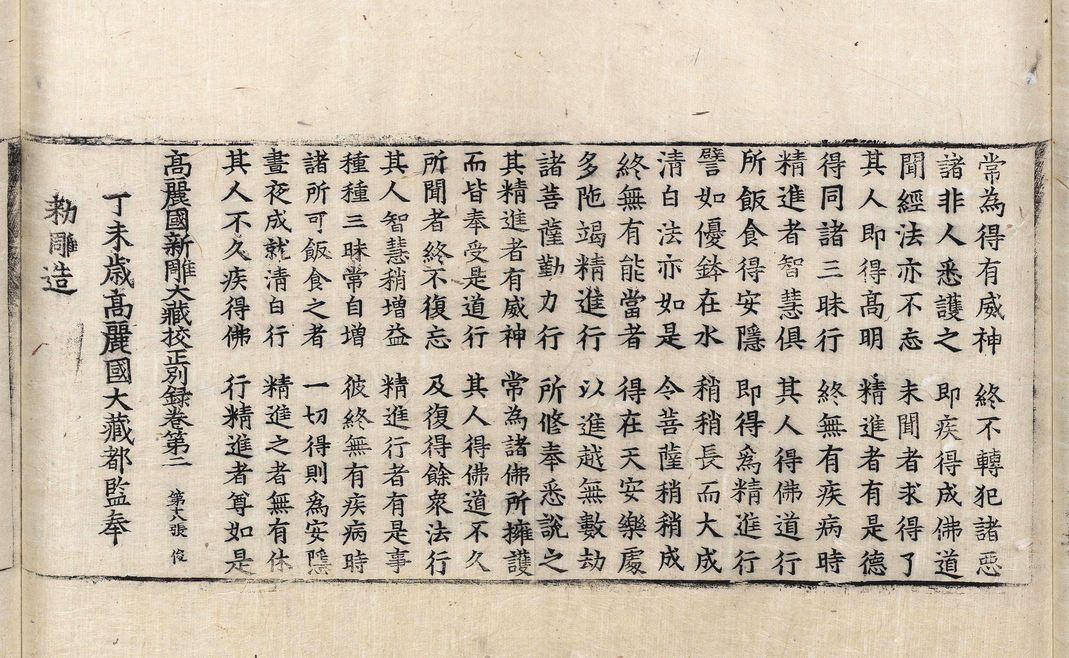 常為得有威神　終不轉犯諸惡
諸非人悉護之　即疾得成佛道
聞經法亦不忘　未聞者求得了
其人即得高明　精進者有是德
得同諸三昧行　終無有疾病時
精進者智慧俱　其人得佛道行
所飯食得安隱　即得爲精進行
譬如優鉢在水　稍稍長而大成
淸白法亦如是　令菩薩稍稍成
終無有能當者　得在天安樂處
多陁竭精進行　以進越無數劫
諸菩薩勤力行　所修奉悉說之
其精進者有威神　常為諸佛所擁護
而皆奉受是道行　其人得佛道不久
所聞者終不復忘　及復得餘衆法行
其人智慧稍增益　精進行者有是事
種種三昧常自增　彼終無有疾病時
諸所可飯食之者　一切得則爲安隱
晝夜成就淸白行　精進之者無有休
其人不久疾得佛　行精進者尊如是
高麗國新雕大藏校正別録卷第二　第十八張　俊
丁未歲高麗國大藏都監奉
勑雕造